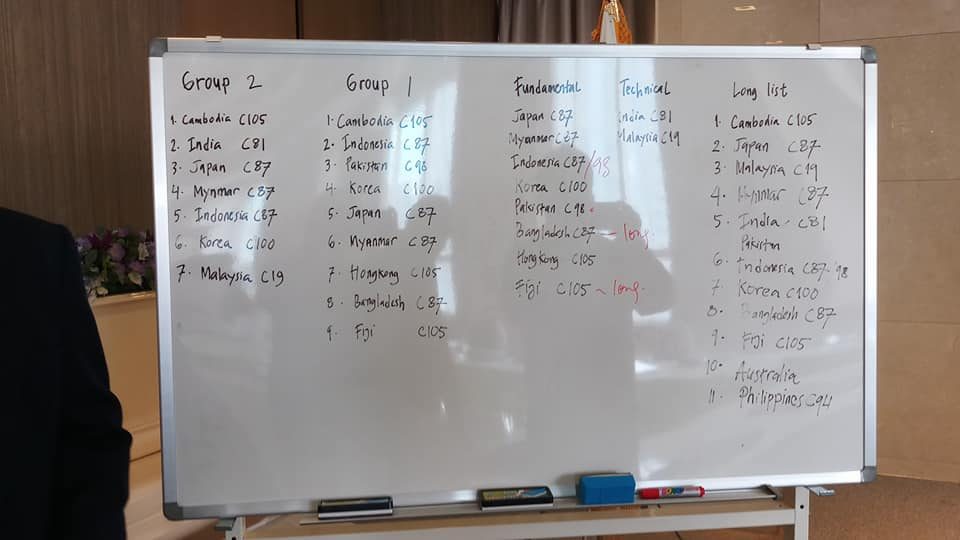 Group 2
1. Cambodia C105
2. India C81
3. Japan C87
4. Mynmar C87
5. Indonesia C87
6. Korea C100
7. Malaysia C19
Group 1
1. Cambodia C105
2. Indonesia C87
3. Pakistan C98
4. Korea C100
5. Japan C87
6. Myanmar C87
7. Hongkong C105
8. Bangladesh C87
9. Fiji C105
Fundamental
Japan C87
Myanmar C87
Indonesia C87/98
Korea C100
Pakistan C98
Bangladesh C87 - long.
Hongkong C105
Fiji C105 - long.
Technical
India C81
Malaysia C19
Long list
1. Cambodia C105
2. Japan C87
3. Malaysia C19
4. Mynmar C87
5. India - C81
Pakistan
6. Indonesia C87-98
7. Korea C100
8. Bangladesh C87
9. Fiji C105
10. Australia
11. Philippines C94